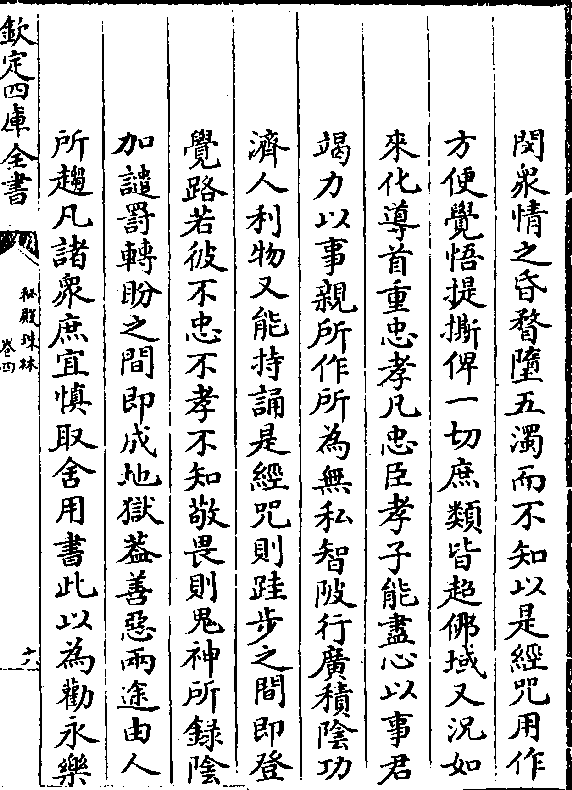 閔衆情之昏瞀墮五濁而不知以是經咒用作
方便覺悟提撕俾一切庶類皆超佛域又況如
來化導首重忠孝凡忠臣孝子能盡心以事君
竭力以事親所作所為無私智陂行廣積陰功
濟人利物又能持誦是經咒則跬步之間即登
覺路若彼不忠不孝不知敬畏則鬼神所錄陰
加譴罰轉盼之間即成地獄葢善惡兩途由人
所趨凡諸衆庶宜慎取舍用書此以為勸永樂
欽定四庫全書
秘殿珠林
卷四
十六